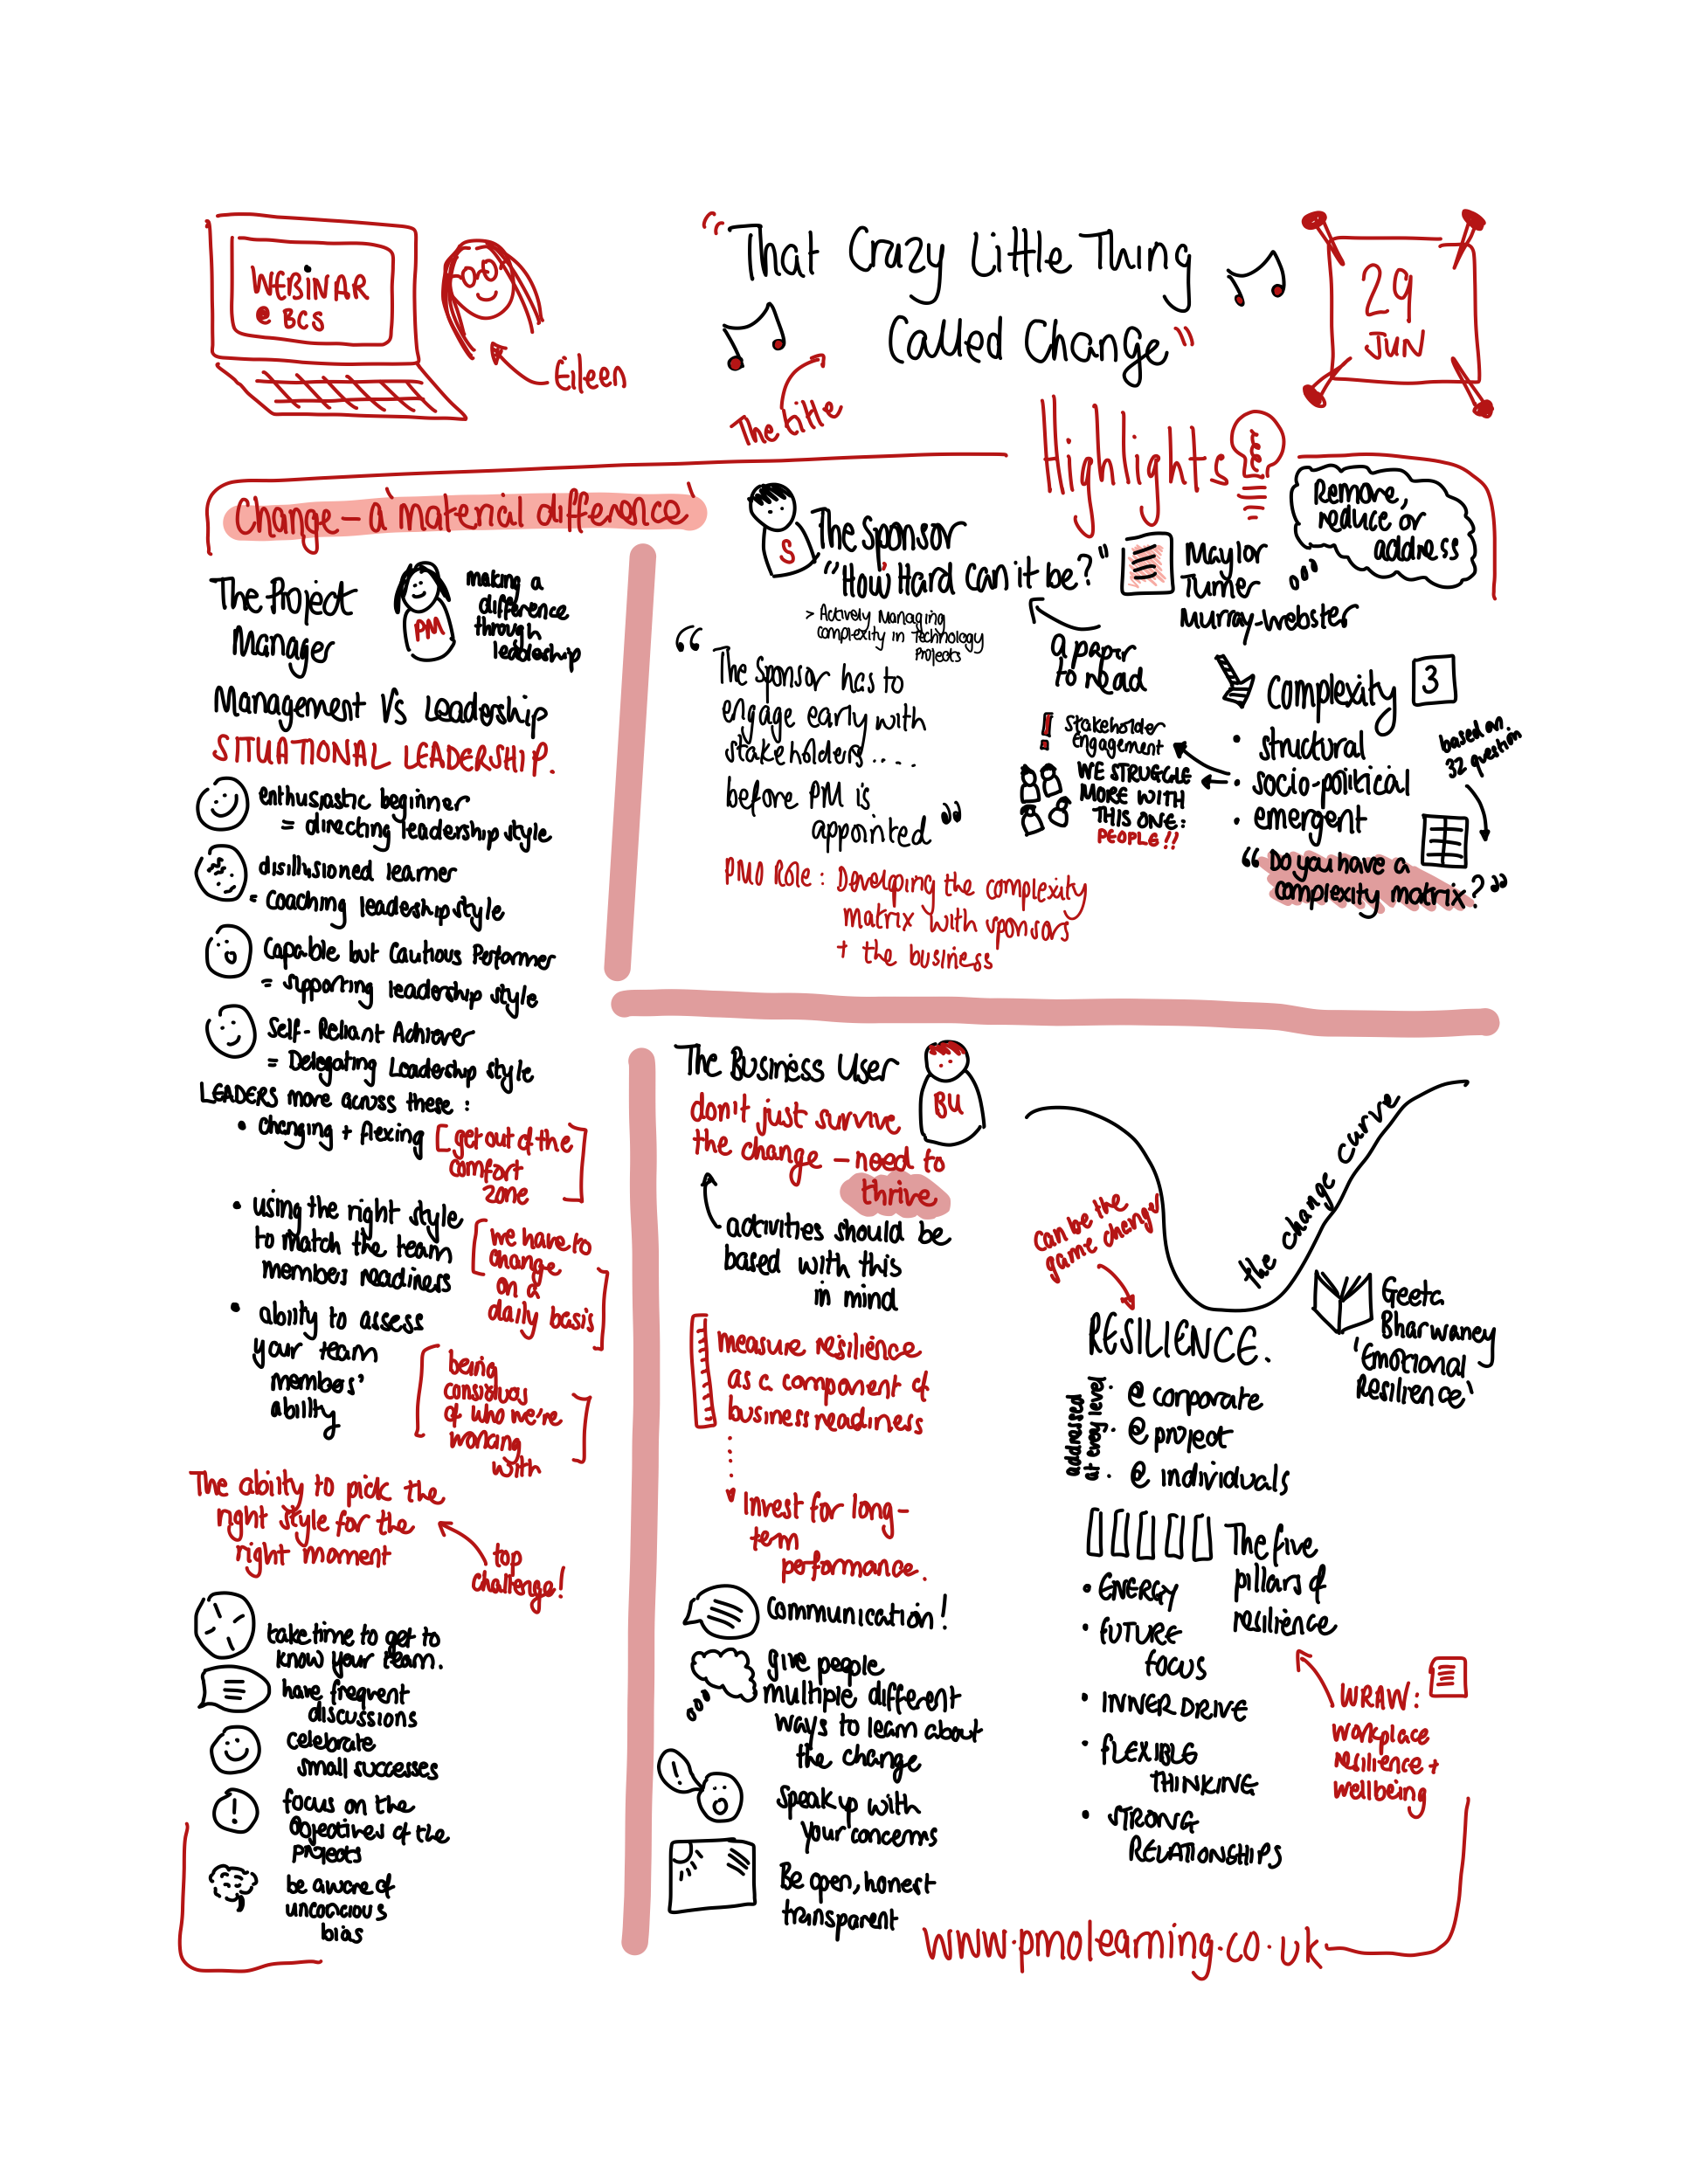 WEBINAR
@ BCS
Eileen
"That Crazy Little Thing
Called Change"
The title
29
JUN
Highlights
Change - a 'material difference'
The Project
Manager
PM
making a
difference
through
leadership
Management Vs Leadership
SITUATIONAL LEADERSHIP.
enthusiastic beginner
= directing leadership style
disillusioned learner
= Coaching leadership style
Capable but Cautious Performer
= supporting leadership style
Self-Reliant Achiever
= Delegating Leadership style
LEADERS more across these:
• Changing + flexing
[get out of the
comfort
zone]
• using the right style
to match the team
members readiness
[we have to
change
on a
daily basis]
• ability to assess
your team
members'
ability
[being
conscious
of who we're
working
with]
The ability to pick the
right style for the
right moment
top
challenge!
take time to get to
know your team.
have frequent
discussions
celebrate
small successes
focus on the
objectives of the
projects
be aware of
unconcious
bias
S
The Sponsor
"How Hard can it be?"
> Actively Managing
complexity in Technology
Projects
a paper
to read
Maylor
Turner
Murray-Webster
Remove,
reduce or
address
"The Sponsor has to
engage early with
stakeholders.....
before PM is
appointed"
PMO Role: Developing the complexity
matrix with sponsors
+ the business
Complexity 3
• structural
• socio-political
• emergent
based on
32 question
! Stakeholder
engagement
WE STRUGGLE
MORE WITH
THIS ONE:
PEOPLE!!
"Do you have a
complexity matrix?"
The Business User
BU
don't just survive
the change - need to
thrive
activities should be
based with this
in mind
measure resilience
as a component of
business readiness
Invest for long-
term
performance.
Communication!
give people
multiple different
ways to learn about
the change
!
speak up with
your concerns
Be open, honest
transparent
the change curve
can be the
game changer
RESILIENCE.
addressed
at every level
• @ corporate
• @ project
• @ individuals
Geeta
Bharwaney
'Emotional
Resilience'
The five
pillars of
resilience
• ENERGY
• FUTURE
FOCUS
• INNER DRIVE
• FLEXIBLE
THINKING
• STRONG
RELATIONSHIPS
WRAW:
workplace
resilience +
wellbeing
www.pmolearning.co.uk